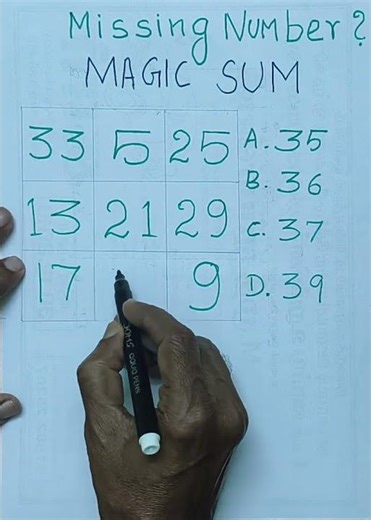 Missing Number?
MAGIC SUM
33 5 25 A. 35
B. 36
13 21 29 C. 37
17 9 D. 39